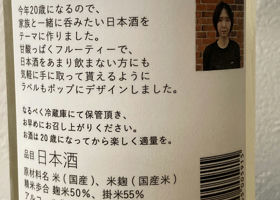 今年20歳になるので、
家族と一緒に呑みたい日本酒を
テーマに作りました。
甘酸っぱくフルーティーで、
日本酒をあまり飲まない方にも
気軽に手に取って貰えるように
ラベルもポップにデザインしました。
なるべく冷蔵庫にて保管頂き、
お早めにお召し上がりください。
お酒は20歳になってから楽しく適量を。
品目 日本酒
原材料名 米(国産)、米麹(国産米)
精米歩合 麹米50%、掛米55%